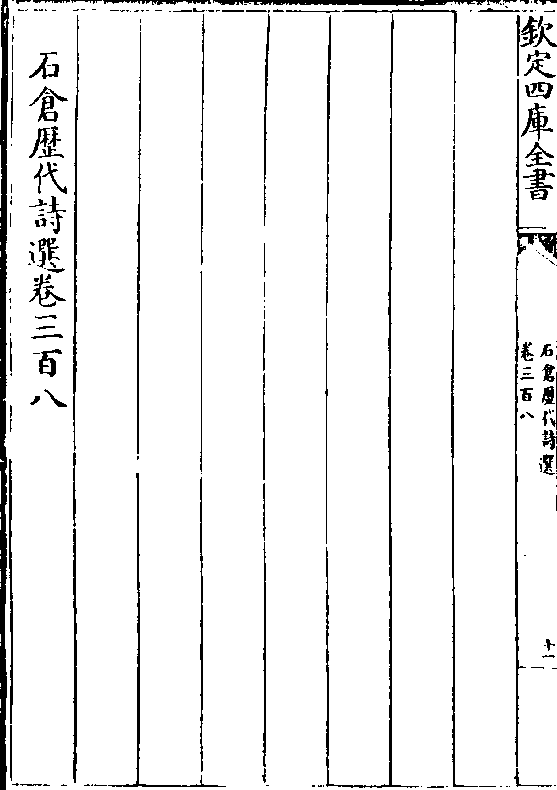 欽定四庫全書
石倉歷代詩選
卷三百八
十一
石倉歷代詩選卷三百八